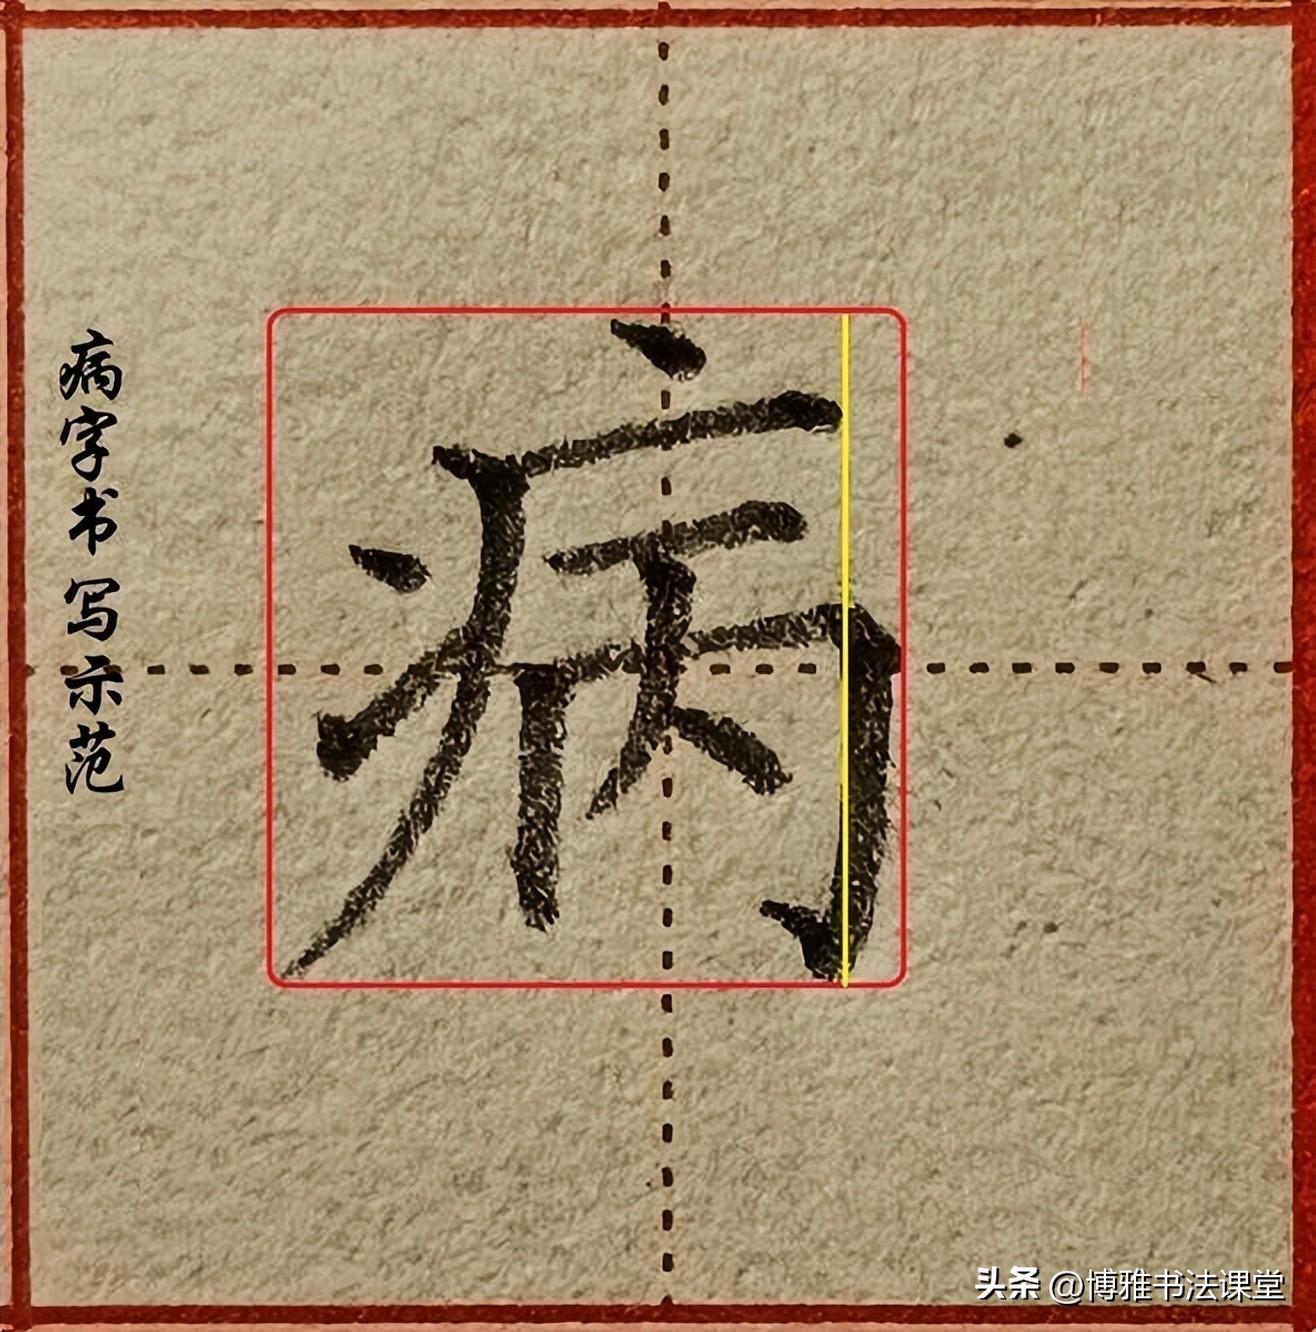 病字书写示范
病
头条 @博雅书法课堂